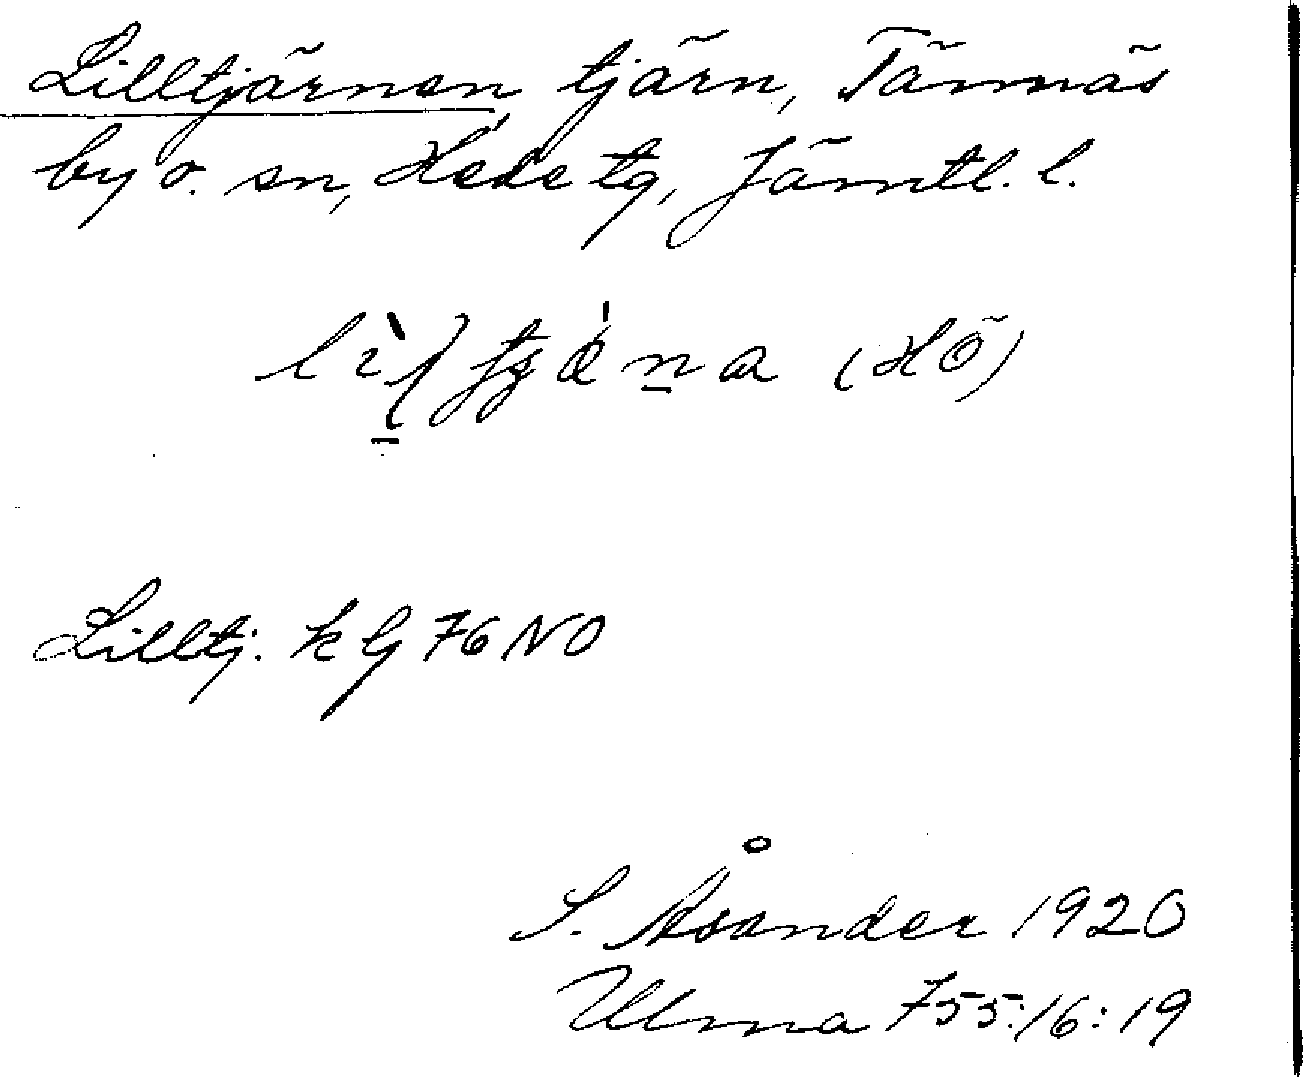 Lilltjärnen, tjärn, Tännäs
by o. sn, Hede tg, Jämtl. l.
(Hö)
Lilltj. k G 76 NO
S. Åsander 1920
Ulma 755:16:19